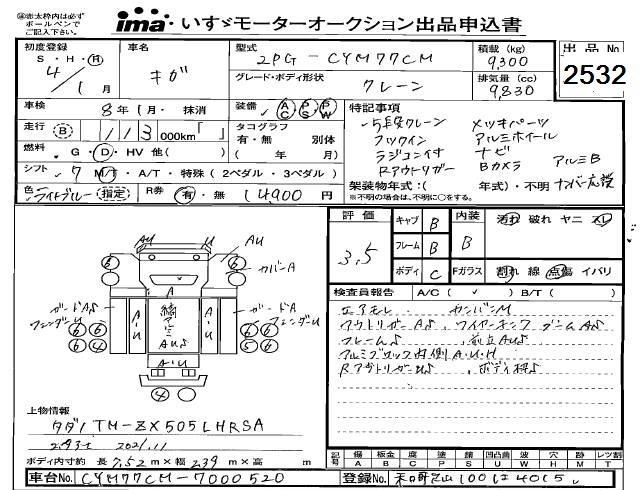 ima いすゞモーターオークション出品申込書
㊟赤太枠内は必ず
ボールペンで
ご記入下さい。
初度登録 S・H・Ⓗ
4/1月
車名 ギガ
型式 2PG-CYM77CM
積載(kg) 9,300
グレード・ボディ形状 クレーン
排気量(cc) 9,830
出品No 2532
車検 8年1月・抹消
装備 AC PS PW
走行(B) 113 000km「 」
タコグラフ 有・無 別体
( 年 月)
燃料 G・D・HV 他( )
シフト 7 MT・A/T・特殊(2ペダル・3ペダル)
色 ライトブルー(指定) R券 有・無 14900円
特記事項
5段クレーン メッキパーツ
フックイン アルミホイール
ラジコン付 ナビ
Rアウトリガー Bカメラ アルミB
架装物年式:( 年式)・不明 ナンバー応談
※不明の場合は、不明に○をする。
評価 3.5
キャブ B 内装 B 汚れ 破れ ヤニ スレ
フレーム B
ボディ C Fガラス 割れ 線 点傷 イバリ
検査員報告 A/C( ✓ ) B/T( )
エアモレ カンバンM
フレームS 前立AUS
AU AU
カバーA
ガードAS ガードA
フェンダーU フェンダーU
A・U 縞アルミ AUS A・U
A・U
6 6 6 6 6 4 6 6 5 6 4
上物情報
タダノ TM-ZX505LHRSA
2.93t 2021.11
ボディ内寸約 長 7.52 m×幅 2.39 m×高 m
記号 傷A 板金B 腐C 塗P 補S 凸凹曲U 波W 穴H 欠M レツ割T
車台No CYM77CM-7000520
登録No 和歌山100は4015